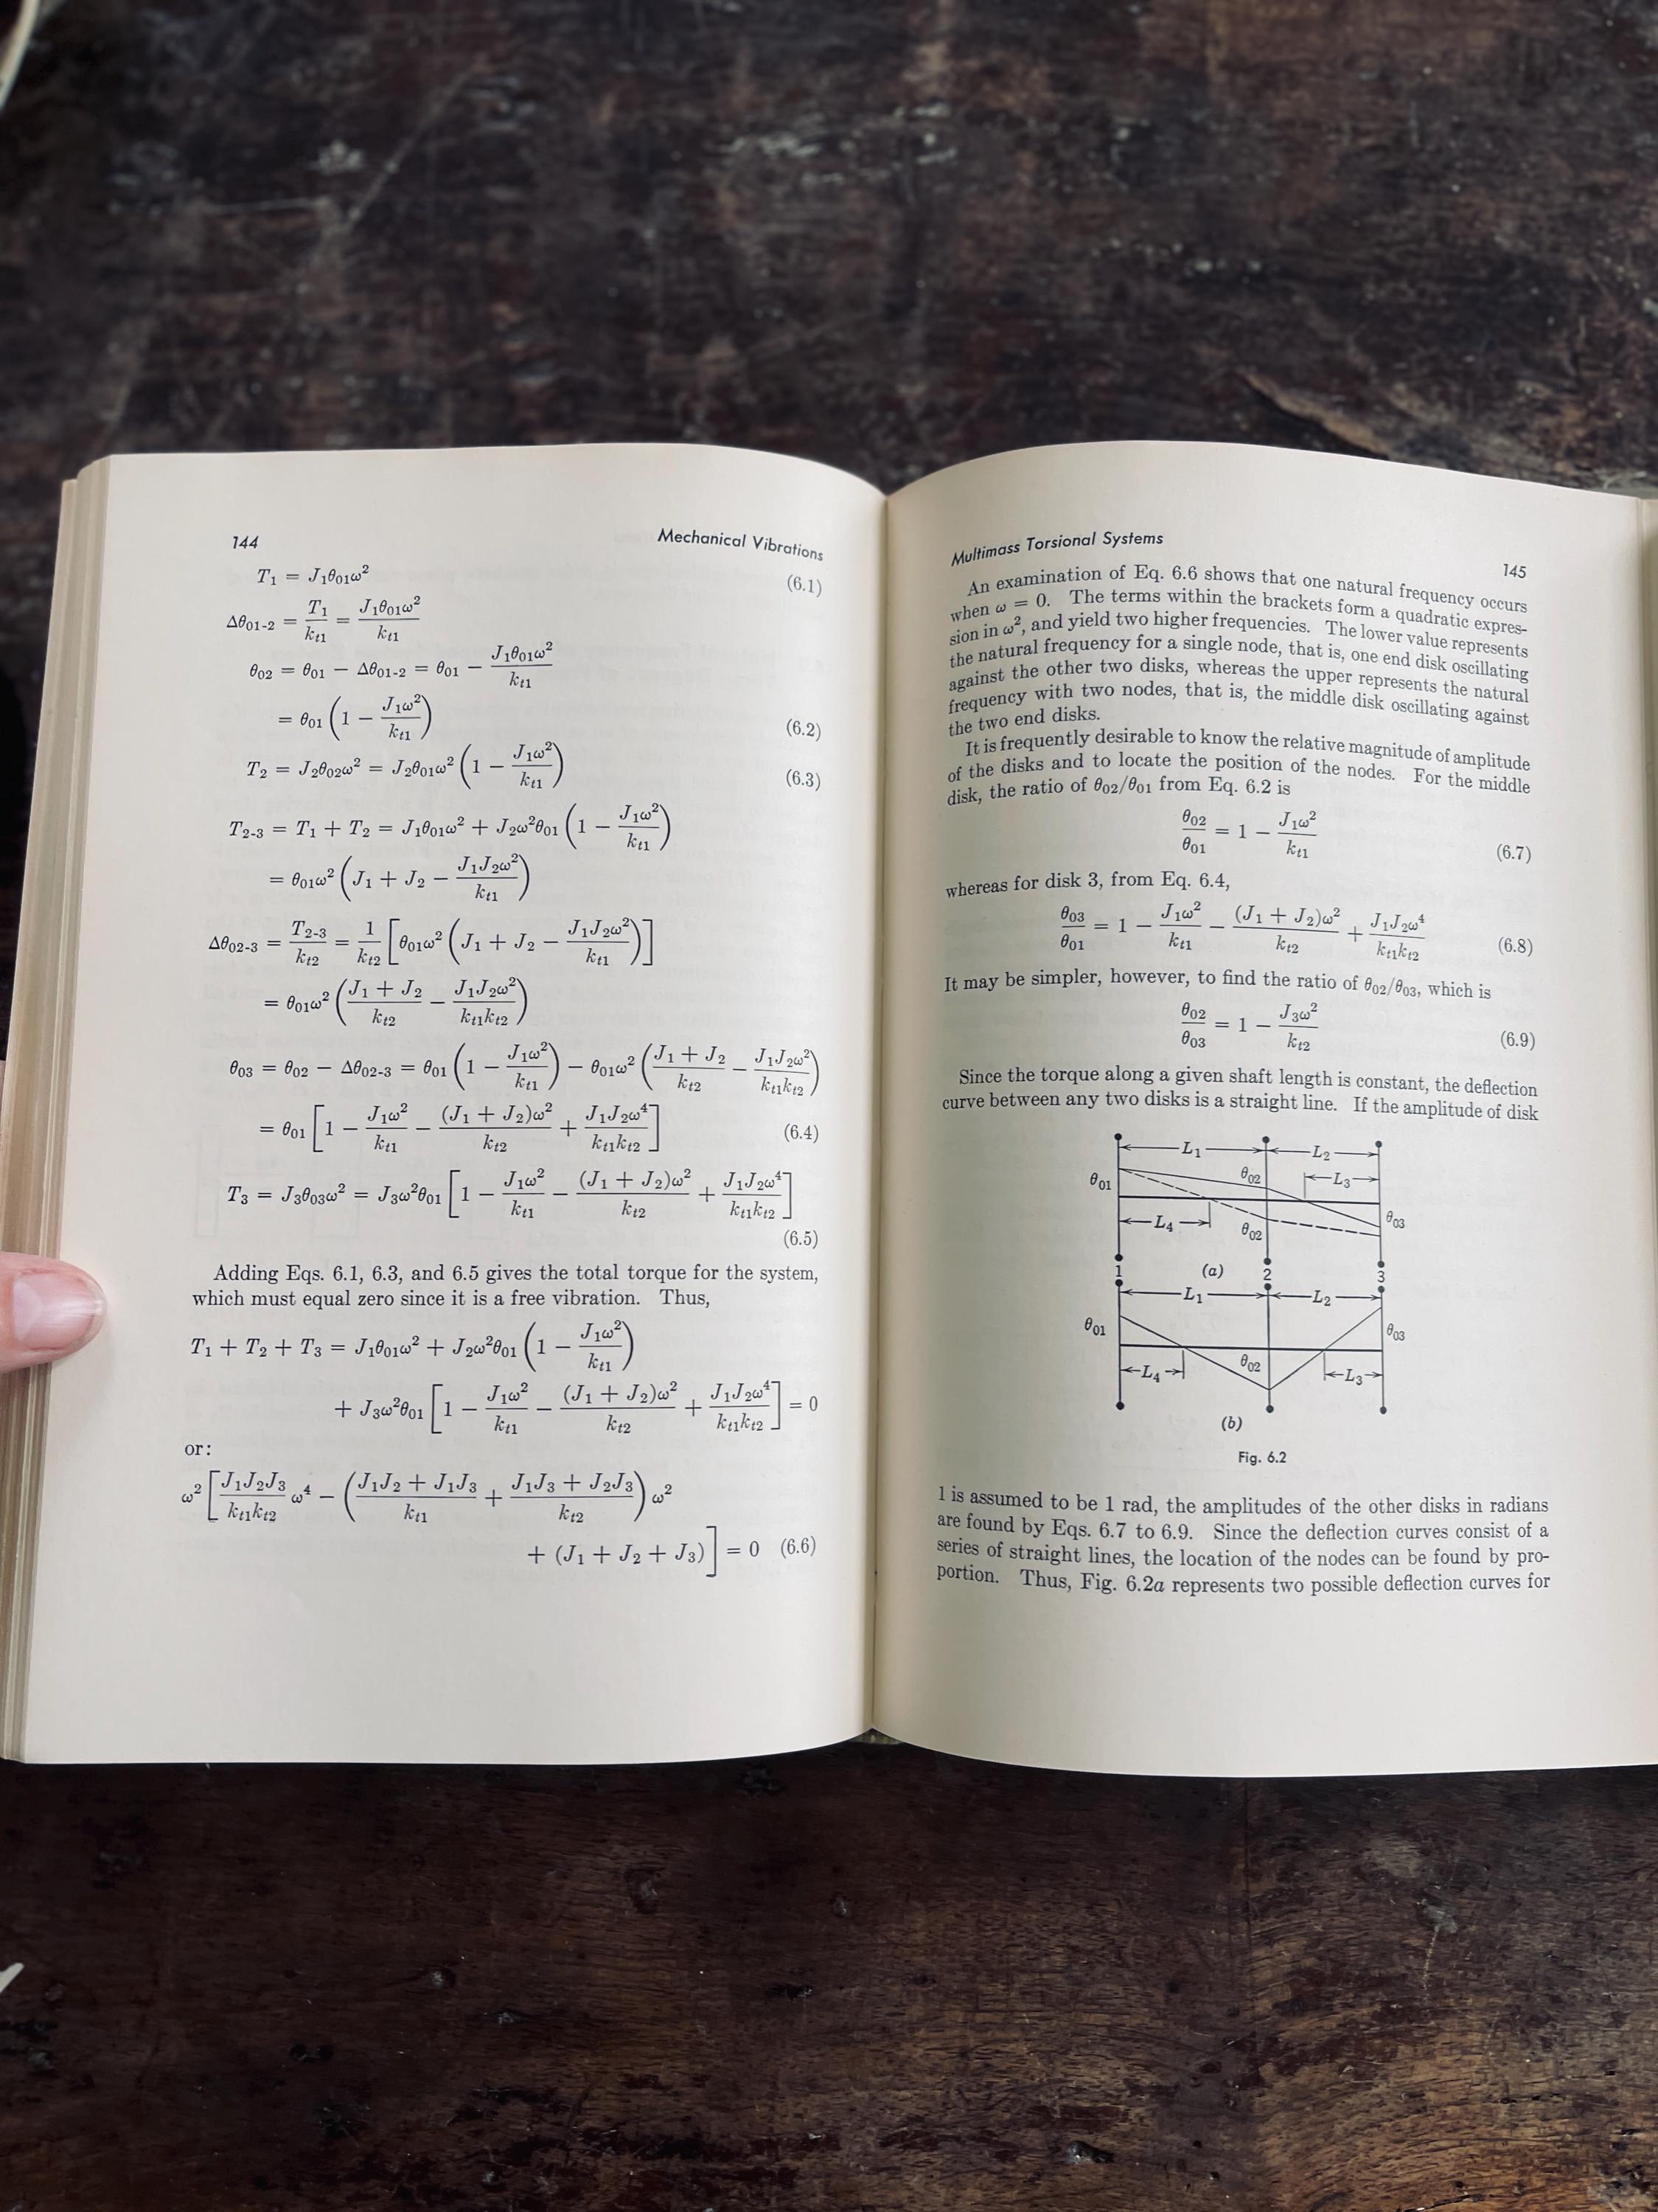 144 Mechanical Vibrations
T₁ = J₁θ₀₁ω² (6.1)
Δθ₀₁₋₂ = T₁/kₜ₁ = J₁θ₀₁ω²/kₜ₁
θ₀₂ = θ₀₁ − Δθ₀₁₋₂ = θ₀₁ − J₁θ₀₁ω²/kₜ₁
= θ₀₁ (1 − J₁ω²/kₜ₁) (6.2)
T₂ = J₂θ₀₂ω² = J₂θ₀₁ω² (1 − J₁ω²/kₜ₁) (6.3)
T₂₋₃ = T₁ + T₂ = J₁θ₀₁ω² + J₂ω²θ₀₁ (1 − J₁ω²/kₜ₁)
= θ₀₁ω² (J₁ + J₂ − J₁J₂ω²/kₜ₁)
Δθ₀₂₋₃ = T₂₋₃/kₜ₂ = 1/kₜ₂ [θ₀₁ω² (J₁ + J₂ − J₁J₂ω²/kₜ₁)]
= θ₀₁ω² ((J₁ + J₂)/kₜ₂ − J₁J₂ω²/kₜ₁kₜ₂)
θ₀₃ = θ₀₂ − Δθ₀₂₋₃ = θ₀₁ (1 − J₁ω²/kₜ₁) − θ₀₁ω² ((J₁ + J₂)/kₜ₂ − J₁J₂ω²/kₜ₁kₜ₂)
= θ₀₁ [1 − J₁ω²/kₜ₁ − (J₁ + J₂)ω²/kₜ₂ + J₁J₂ω⁴/kₜ₁kₜ₂] (6.4)
T₃ = J₃θ₀₃ω² = J₃ω²θ₀₁ [1 − J₁ω²/kₜ₁ − (J₁ + J₂)ω²/kₜ₂ + J₁J₂ω⁴/kₜ₁kₜ₂]
(6.5)
Adding Eqs. 6.1, 6.3, and 6.5 gives the total torque for the system,
which must equal zero since it is a free vibration. Thus,
T₁ + T₂ + T₃ = J₁θ₀₁ω² + J₂ω²θ₀₁ (1 − J₁ω²/kₜ₁)
+ J₃ω²θ₀₁ [1 − J₁ω²/kₜ₁ − (J₁ + J₂)ω²/kₜ₂ + J₁J₂ω⁴/kₜ₁kₜ₂] = 0
or:
ω² [J₁J₂J₃/kₜ₁kₜ₂ ω⁴ − ((J₁J₂ + J₁J₃)/kₜ₁ + (J₁J₃ + J₂J₃)/kₜ₂) ω²
+ (J₁ + J₂ + J₃)] = 0 (6.6)
Multimass Torsional Systems 145
An examination of Eq. 6.6 shows that one natural frequency occurs
when ω = 0. The terms within the brackets form a quadratic expres-
sion in ω², and yield two higher frequencies. The lower value represents
the natural frequency for a single node, that is, one end disk oscillating
against the other two disks, whereas the upper represents the natural
frequency with two nodes, that is, the middle disk oscillating against
the two end disks.
It is frequently desirable to know the relative magnitude of amplitude
of the disks and to locate the position of the nodes. For the middle
disk, the ratio of θ₀₂/θ₀₁ from Eq. 6.2 is
θ₀₂/θ₀₁ = 1 − J₁ω²/kₜ₁ (6.7)
whereas for disk 3, from Eq. 6.4,
θ₀₃/θ₀₁ = 1 − J₁ω²/kₜ₁ − (J₁ + J₂)ω²/kₜ₂ + J₁J₂ω⁴/kₜ₁kₜ₂ (6.8)
It may be simpler, however, to find the ratio of θ₀₂/θ₀₃, which is
θ₀₂/θ₀₃ = 1 − J₃ω²/kₜ₂ (6.9)
Since the torque along a given shaft length is constant, the deflection
curve between any two disks is a straight line. If the amplitude of disk
L₁ L₂
θ₀₁ θ₀₂ L₃
L₄ θ₀₂ θ₀₃
1 (a) 2 3
L₁ L₂
θ₀₁ θ₀₃
L₄ θ₀₂ L₃
(b)
Fig. 6.2
1 is assumed to be 1 rad, the amplitudes of the other disks in radians
are found by Eqs. 6.7 to 6.9. Since the deflection curves consist of a
series of straight lines, the location of the nodes can be found by pro-
portion. Thus, Fig. 6.2a represents two possible deflection curves for